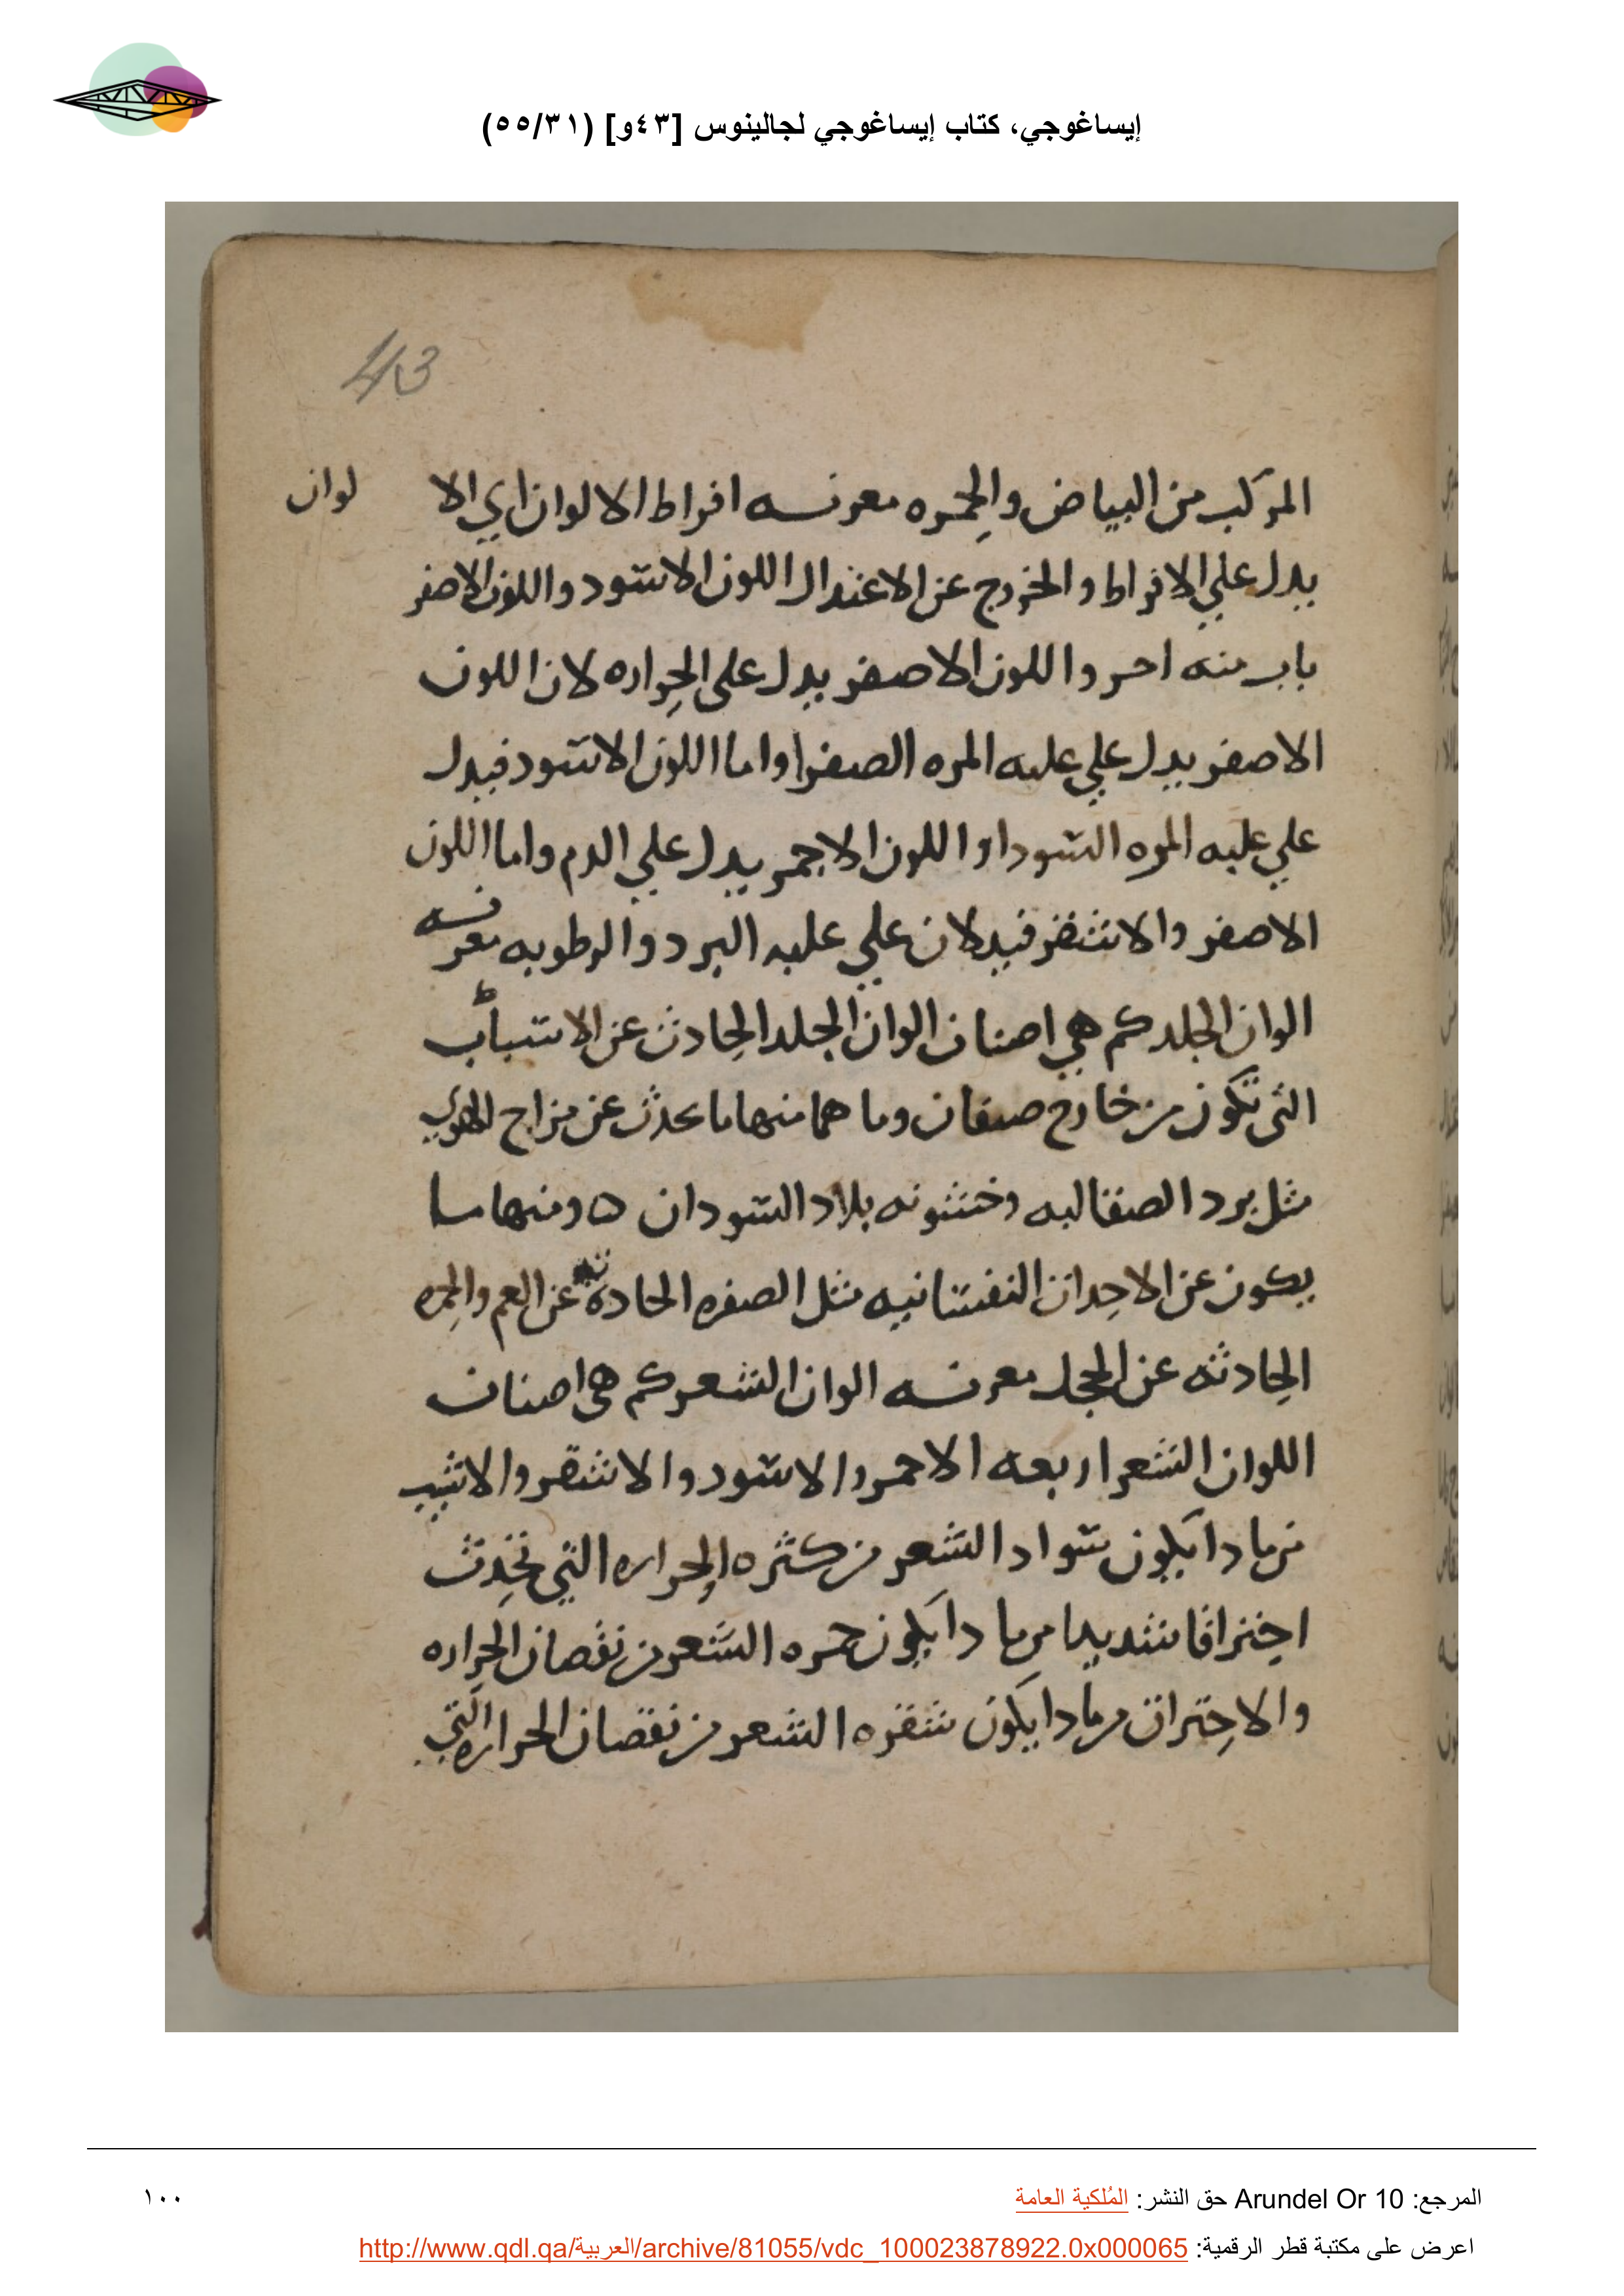 إيساغوجي، كتاب إيساغوجي لجالينوس [٤٣و] (٥٥/٣١)
43
المركب من البياض والحمره معرفه افراط الالوان اي الا لوان
يدل علي الافراط والخروج عن الاعتدال اللون الاسود واللون الاصفر
باب منه اخر واللون الاصفر يدل على الحراره لان اللون
الاصفر يدل علي غلبه المره الصفرا واما اللون الاسود فيدل
علي غلبه المره السودا واللون الاحمر يدل علي الدم واما اللون
الاصفر والاشقر فيدلان علي غلبه البرد والرطوبه معرفه
الوان الجلد كم هي اصناف الوان الجلد الحادث عن الاسباب
التى تكون من خارج صنفان وما هما منها ما يحدث عن مزاج الهوي
مثل برد الصقالبه وخشونه بلاد السودان ه ومنها ما
يكون عن الاحداث النفسانيه مثل الصفره الحادثه عن الغم والحمره
الحادثه عن الخجل معرفه الوان الشعر كم هى اصناف
اللوان الشعر اربعه الاحمر والاسود والاشقر والاشيب
من ماذا يكون سواد الشعر من كثره الحراره التي تحدث
احتراقا شديدا من ما ذا يكون حمره الشعر من نقصان الحراره
والاحتراق من ماذا يكون شقره الشعر من نقصان الحراره التي
المرجع: Arundel Or 10 حق النشر: المُلكية العامة
١٠٠
اعرض على مكتبة قطر الرقمية: http://www.qdl.qa/العربية/archive/81055/vdc_100023878922.0x000065